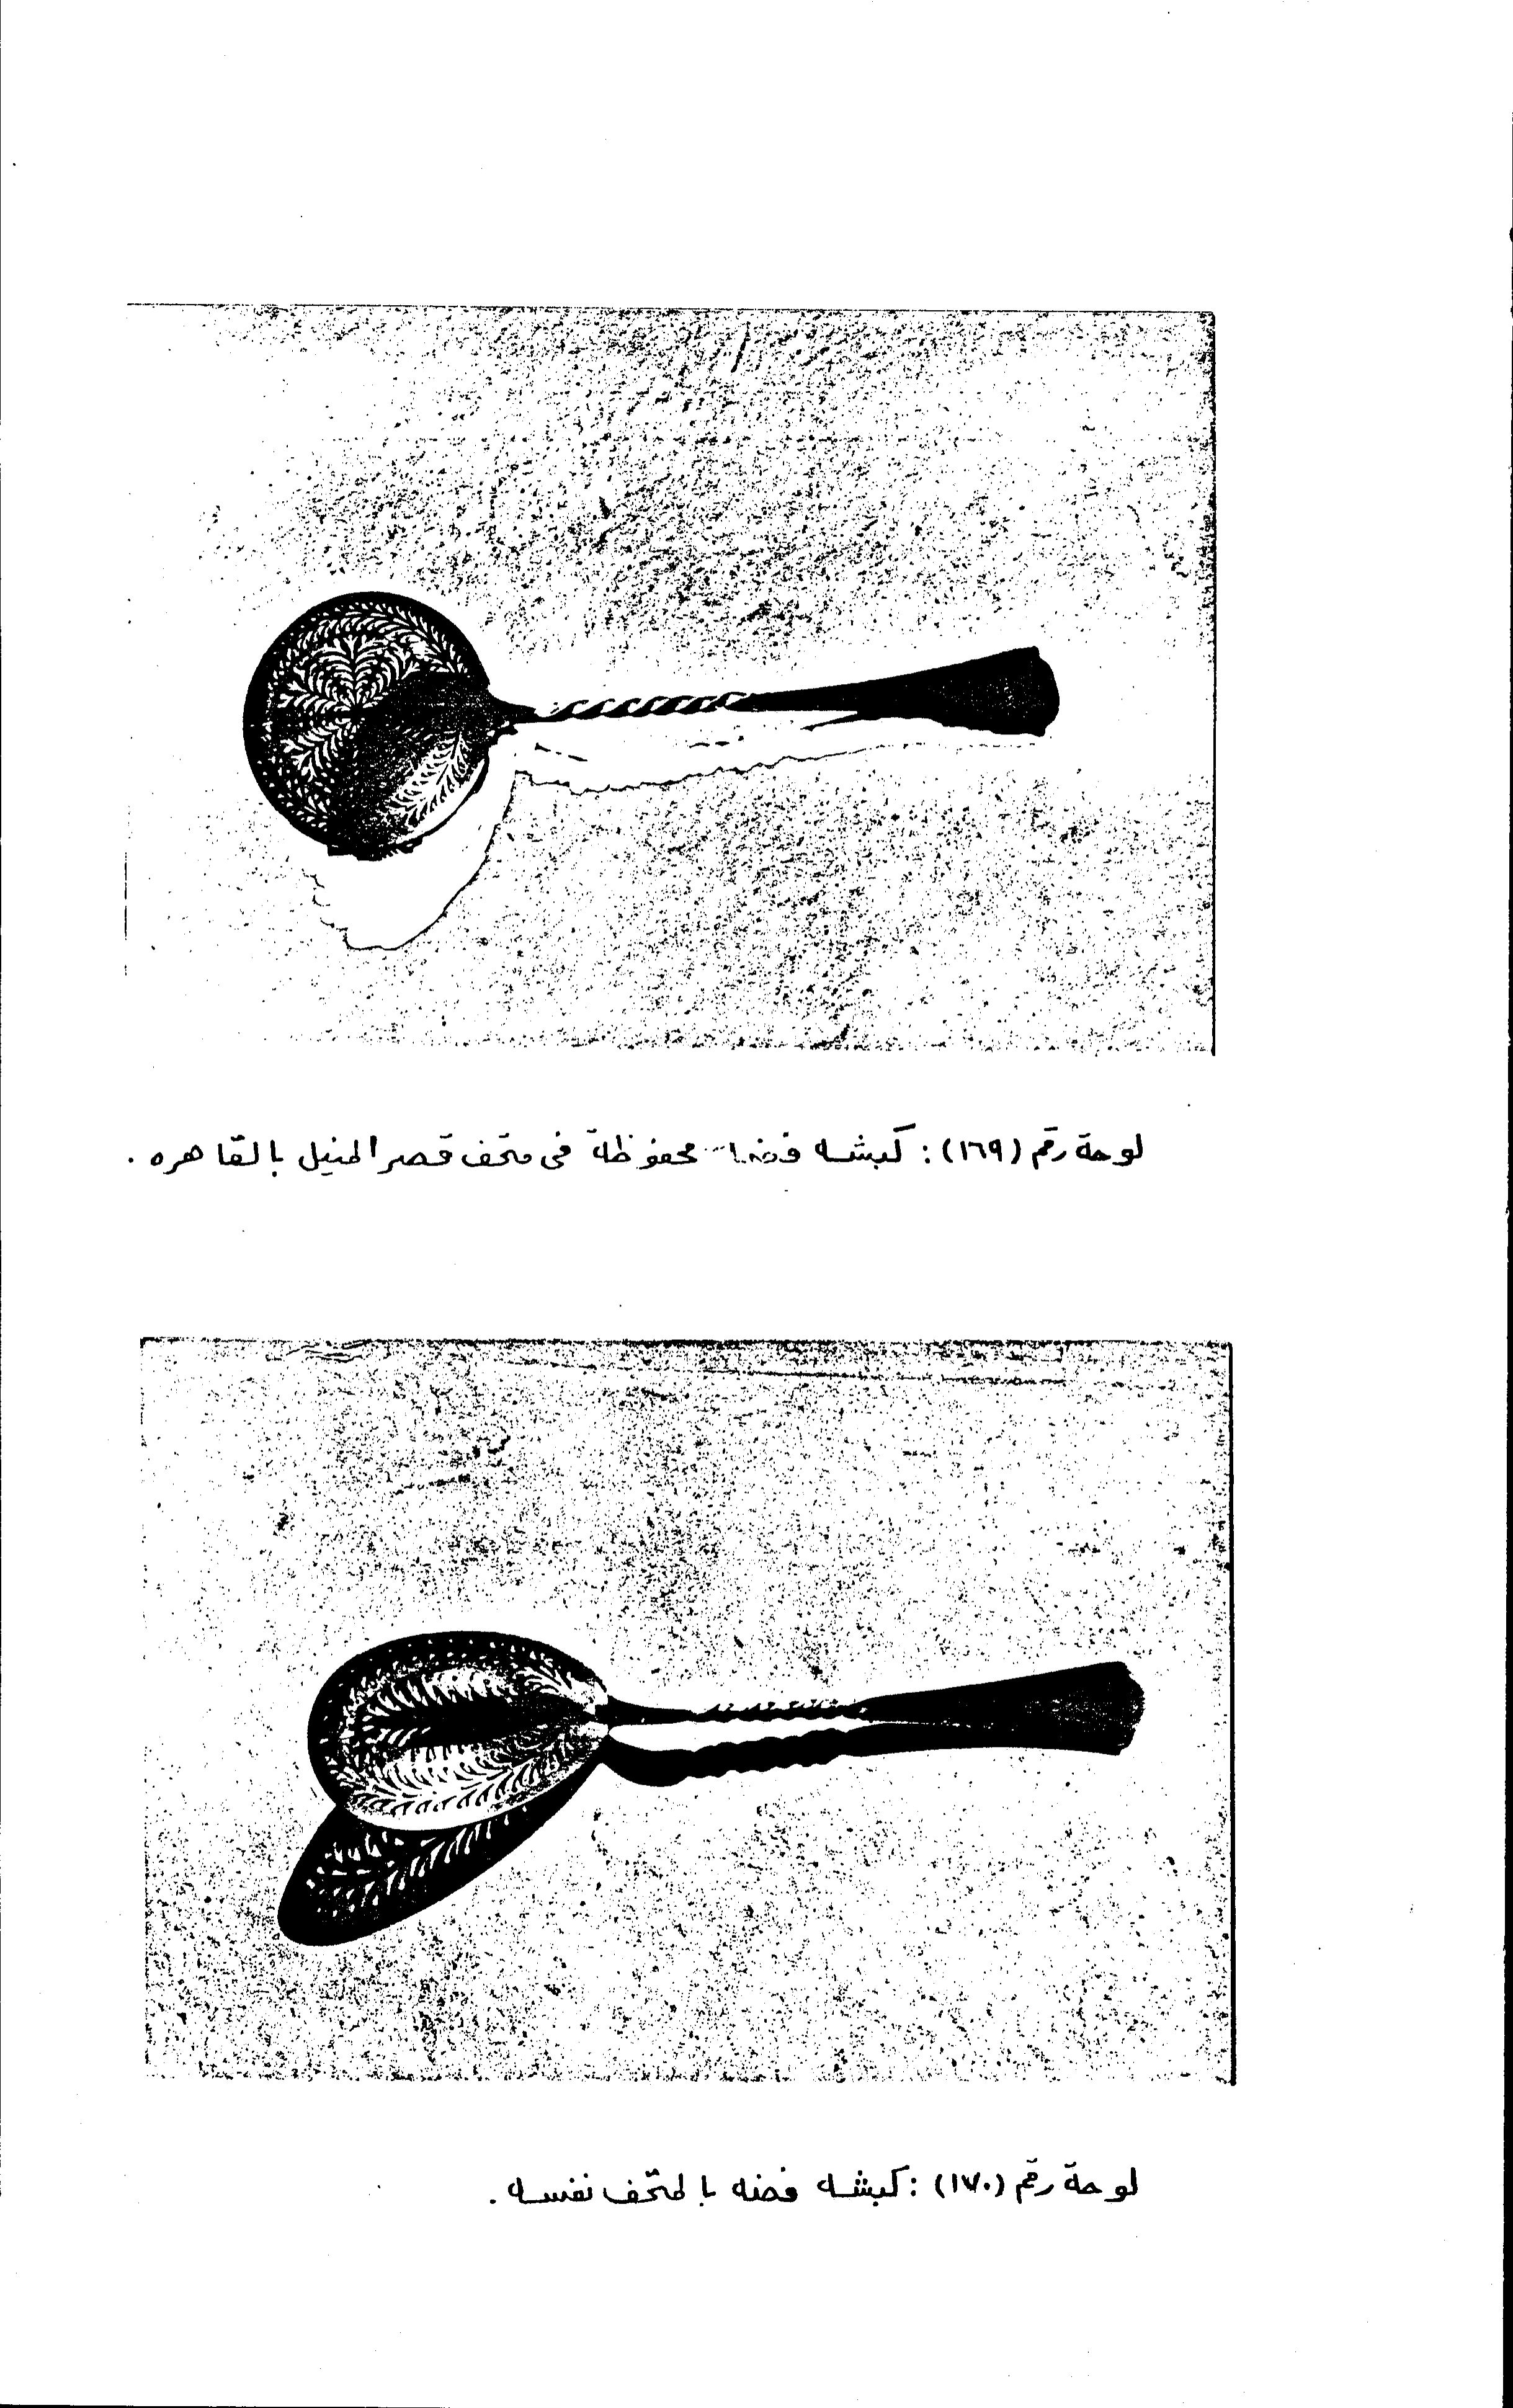 لوحة رقم (١٦٩) : كبشه فضه محفوظة فى متحف قصر المنيل بالقاهره .
لوحة رقم (١٧٠) : كبشه فضه بالمتحف نفسه .